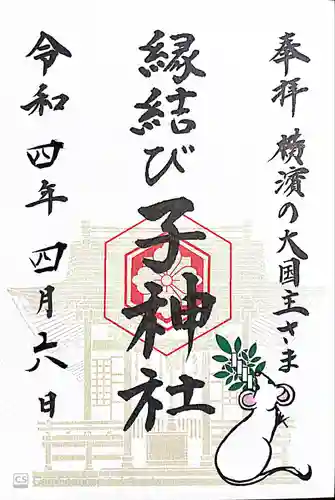 奉拝 横濱の大国主さま
縁結び 子神社
令和四年 四月十八日
CS